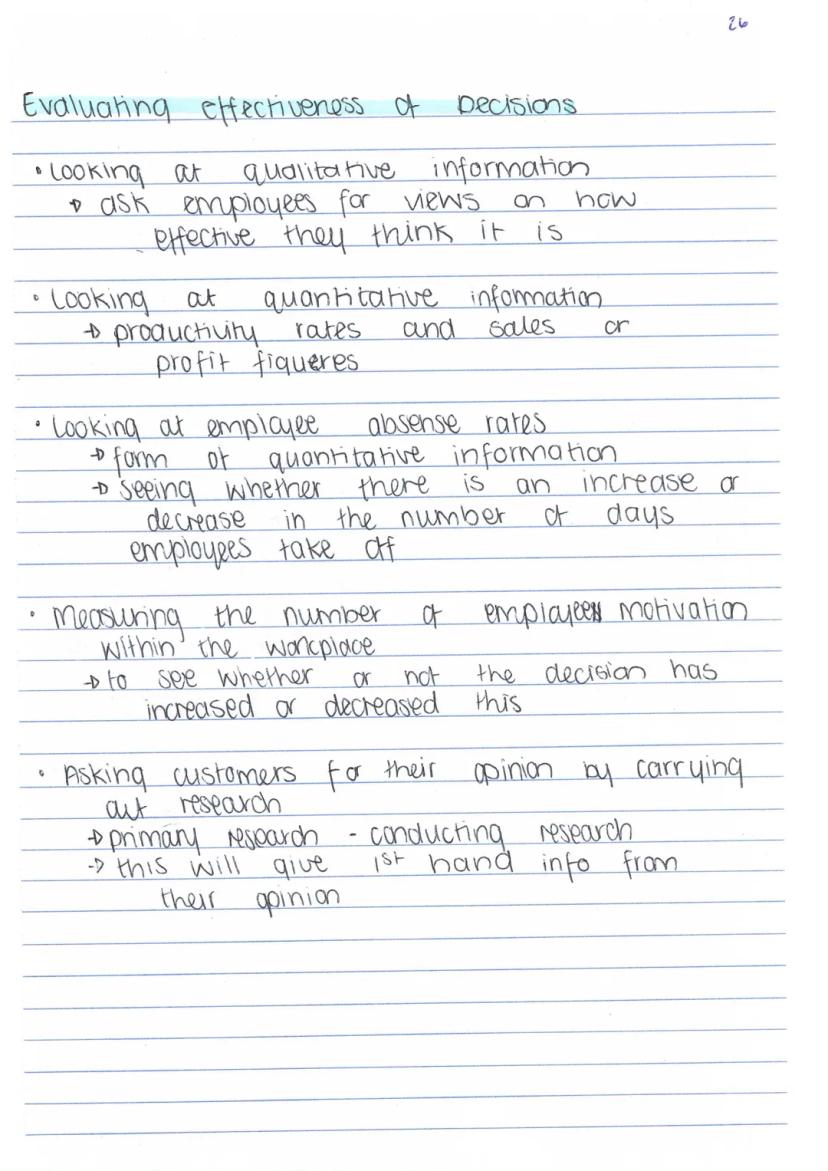 26
Evaluating effectiveness of Decisions
• Looking at qualitative information
→ ask employees for views on how
effective they think it is
• Looking at quantitative information
→ productivity rates and sales or
profit fiqueres
• Looking at employee absense rates
→ form of quantitative information
→ seeing whether there is an increase or
decrease in the number of days
employees take off
• Measuring the number of employees motivation
within the workplace
→ to see whether or not the decision has
increased or decreased this
• Asking customers for their opinion by carrying
out research
→ primary research - conducting research
→ this will give 1st hand info from
their opinion